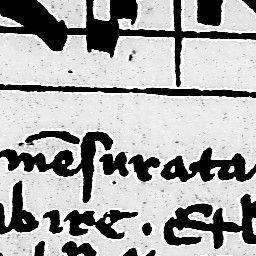 mēsurata
bire. Et